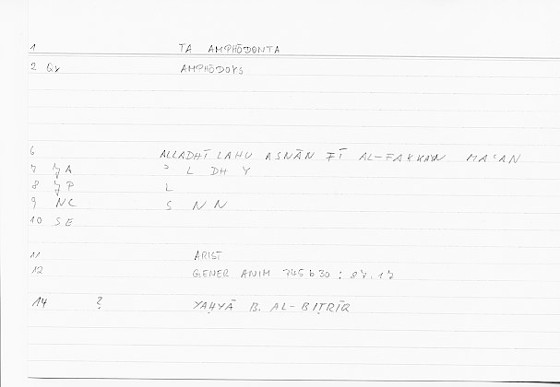 1 TA AMPHŌDONTA
2 Gr AMPHŌDOYS
6 ALLADHĪ LAHU ASNĀN FĪ AL-FAKKAYN MAʿAN
7 A ʾ L DH Y
8 P L
9 NC S N N
10 SE
11 ARIST
12 GENER ANIM 745 b 30 : 87.17
14 ? YAḤYĀ B. AL-BIṬRĪQ